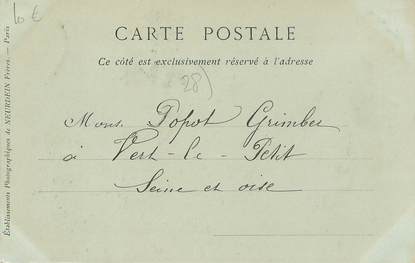 10 €
CARTE POSTALE
Ce côté est exclusivement réservé à l'adresse
28)
Mons. Popot Grimber
à Vert-le-Petit
Seine et oise
Établissements Photographiques de NEURDEIN Frères. — Paris